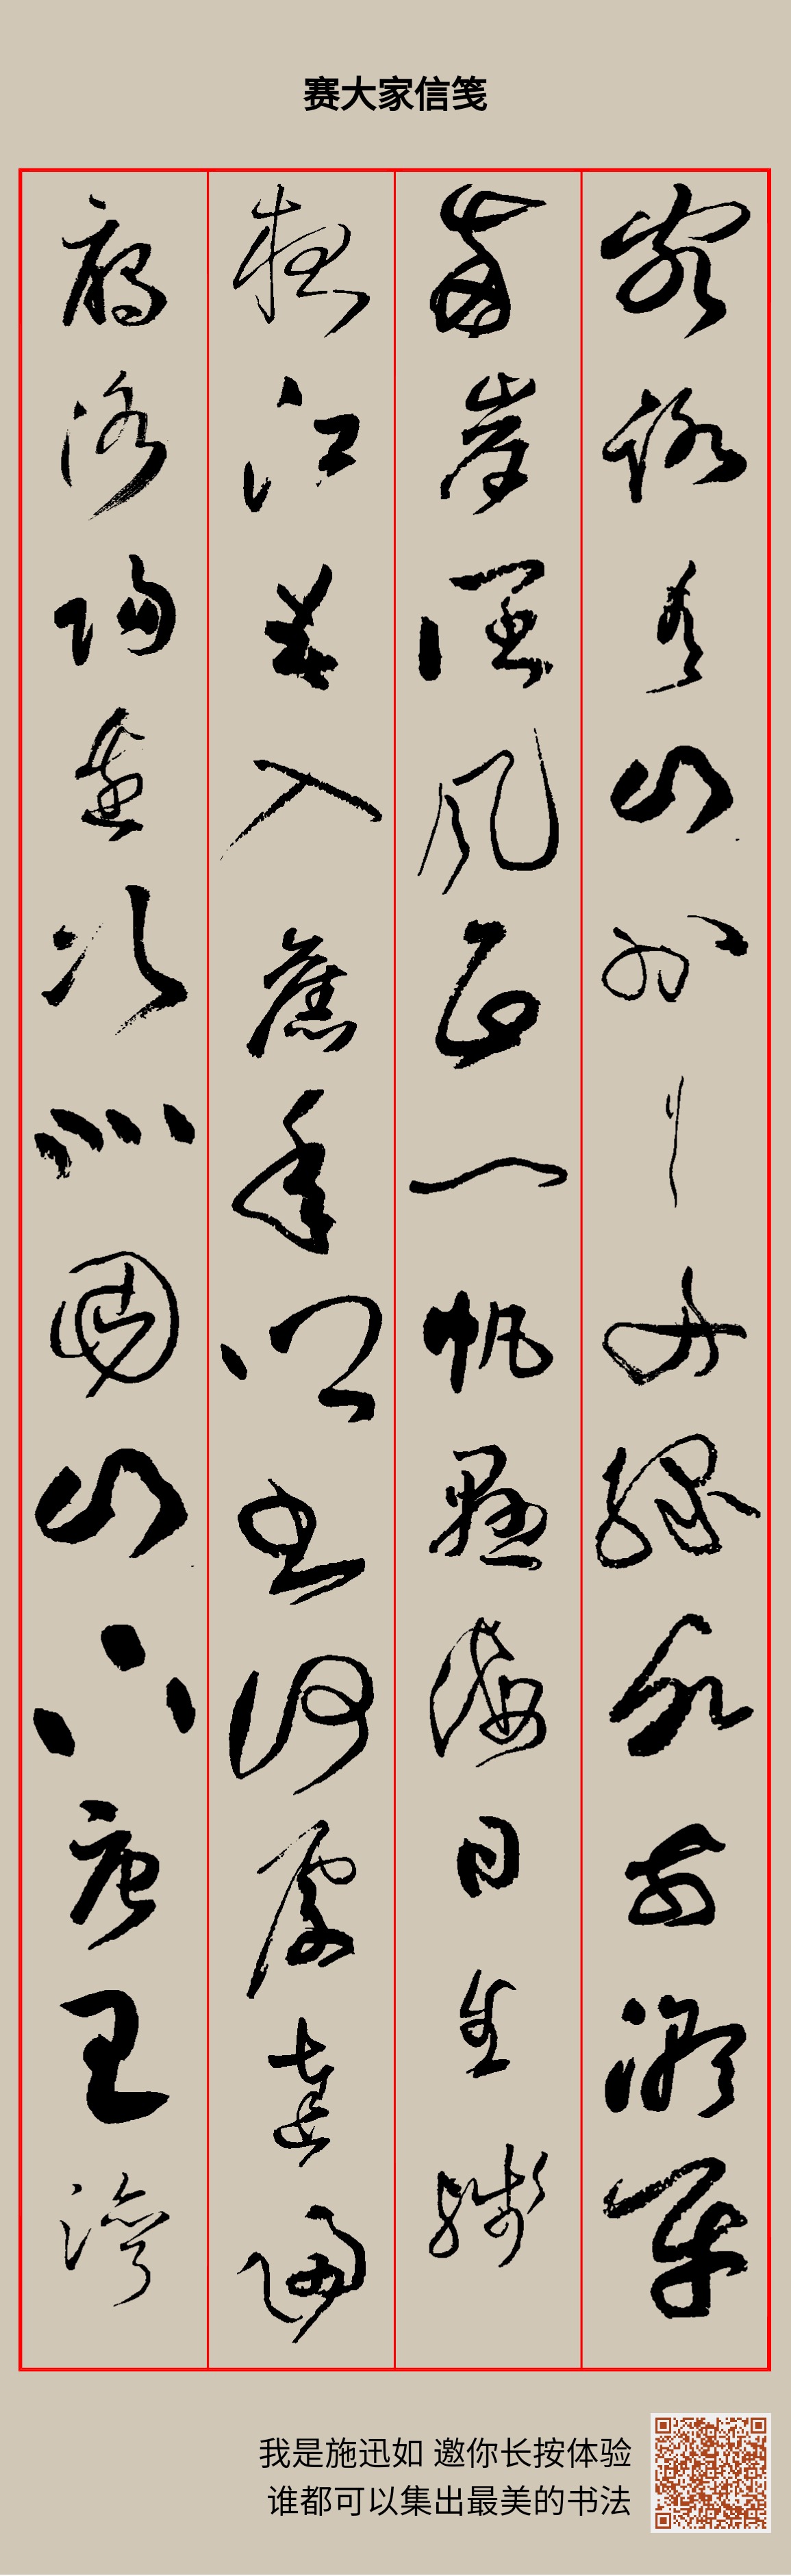 赛大家信笺
客路青山外行舟綠水前潮平
兩岸闊風正一帆懸海日生殘
夜江春入舊年鄉書何處達歸
雁洛陽邊次北固山下唐王灣
我是施迅如 邀你长按体验
谁都可以集出最美的书法